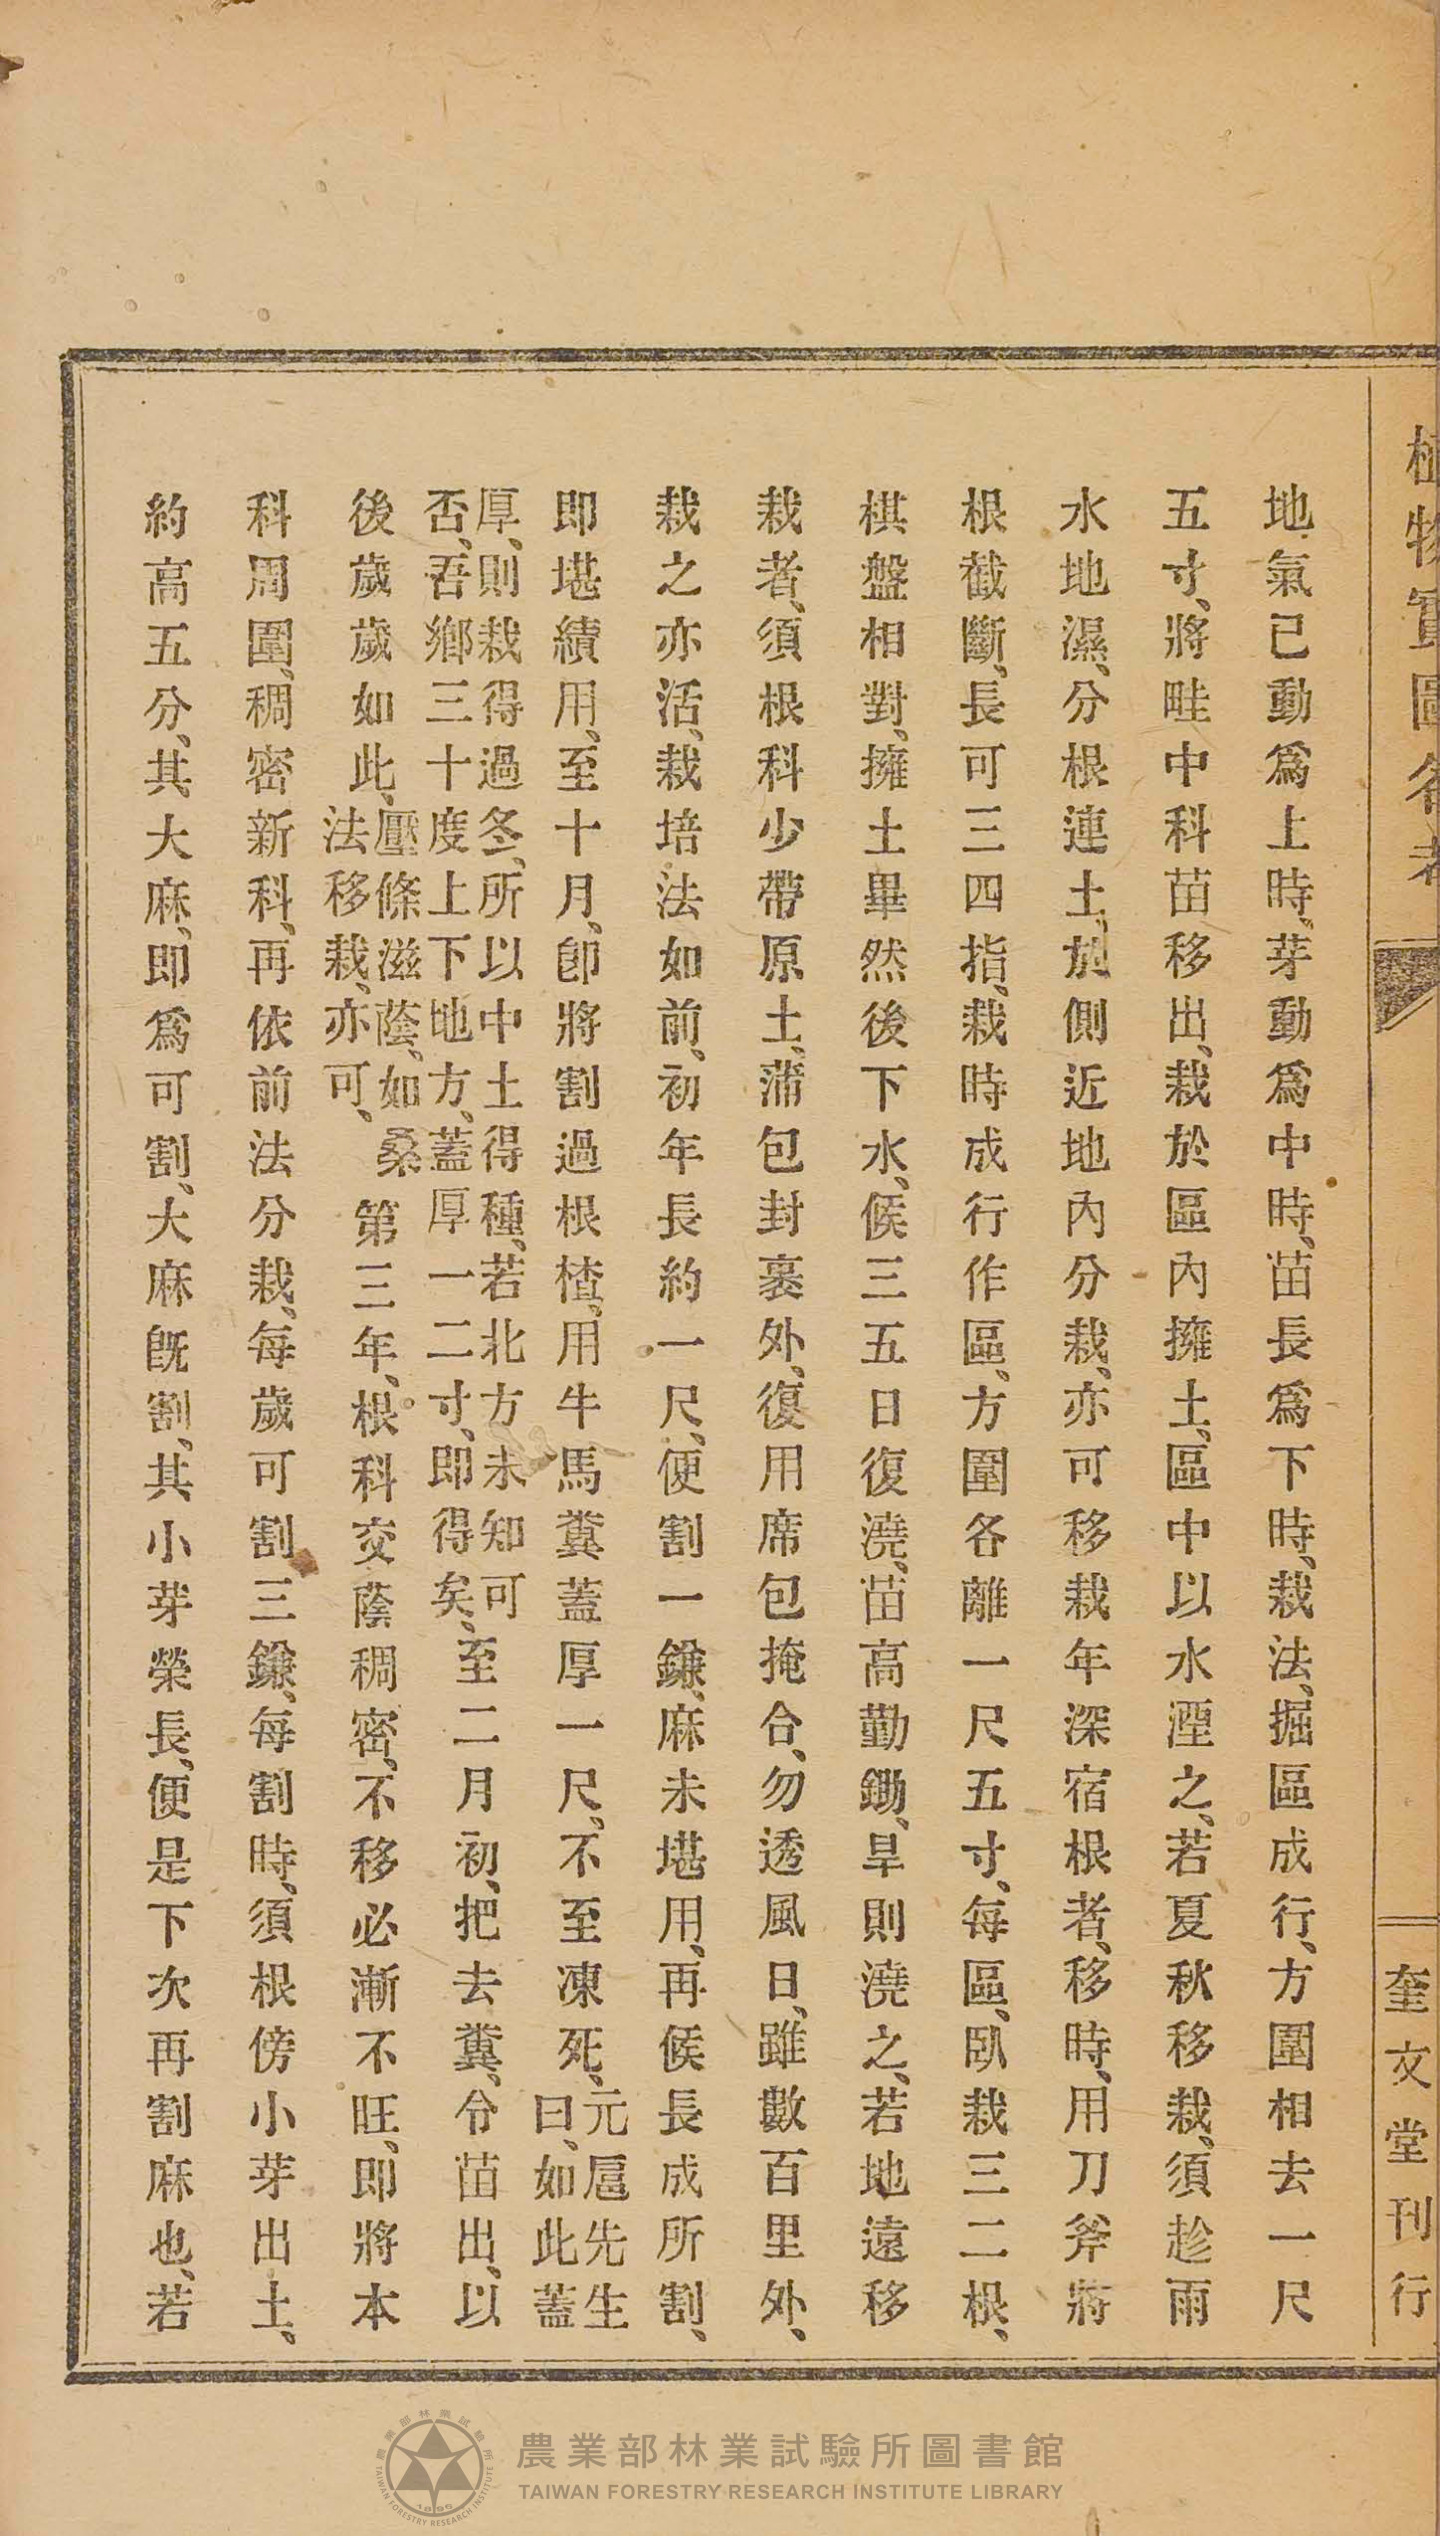 植物實圖名考
奎文堂刊行
地氣已動爲上時、芽動爲中時、苗長爲下時、栽法、掘區成行、方圍相去一尺
五寸、將畦中科苗移出、栽於區內擁土、區中以水湮之、若夏秋移栽、須趁雨
水地濕、分根連土、於側近地內分栽、亦可移栽年深宿根者、移時、用刀斧將
根截斷、長可三四指、栽時成行作區、方圍各離一尺五寸、每區、臥栽三二根、
棋盤相對、擁土畢然後下水、候三五日復澆、苗高勤鋤、旱則澆之、若地遠移
栽者、須根科少帶原土、蒲包封裹外、復用席包掩合、勿透風日、雖數百里外、
栽之亦活、栽培法如前、初年長約一尺、便割一鎌、麻未堪用、再候長成所割、
即堪績用、至十月、卽將割過根楂、用牛馬糞蓋厚一尺、不至凍死、元扈先生
曰、如此蓋
厚、則栽得過冬、所以中土得種、若北方未知可
否、吾鄉三十度上下地方、蓋厚一二寸、即得矣、至二月初、把去糞、令苗出、以
後歲歲如此、壓條滋蔭、如桑
法移栽、亦可、第三年、根科交蔭稠密、不移必漸不旺、即將本
科周圍、稠密新科、再依前法分栽、每歲可割三鎌、每割時、須根傍小芽出土、
約高五分、其大麻、即爲可割、大麻既割、其小芽榮長、便是下次再割麻也、若
農業部林業試驗所圖書館
TAIWAN FORESTRY RESEARCH INSTITUTE LIBRARY
農業部林業試驗所
TAIWAN FORESTRY RESEARCH INSTITUTE
1895